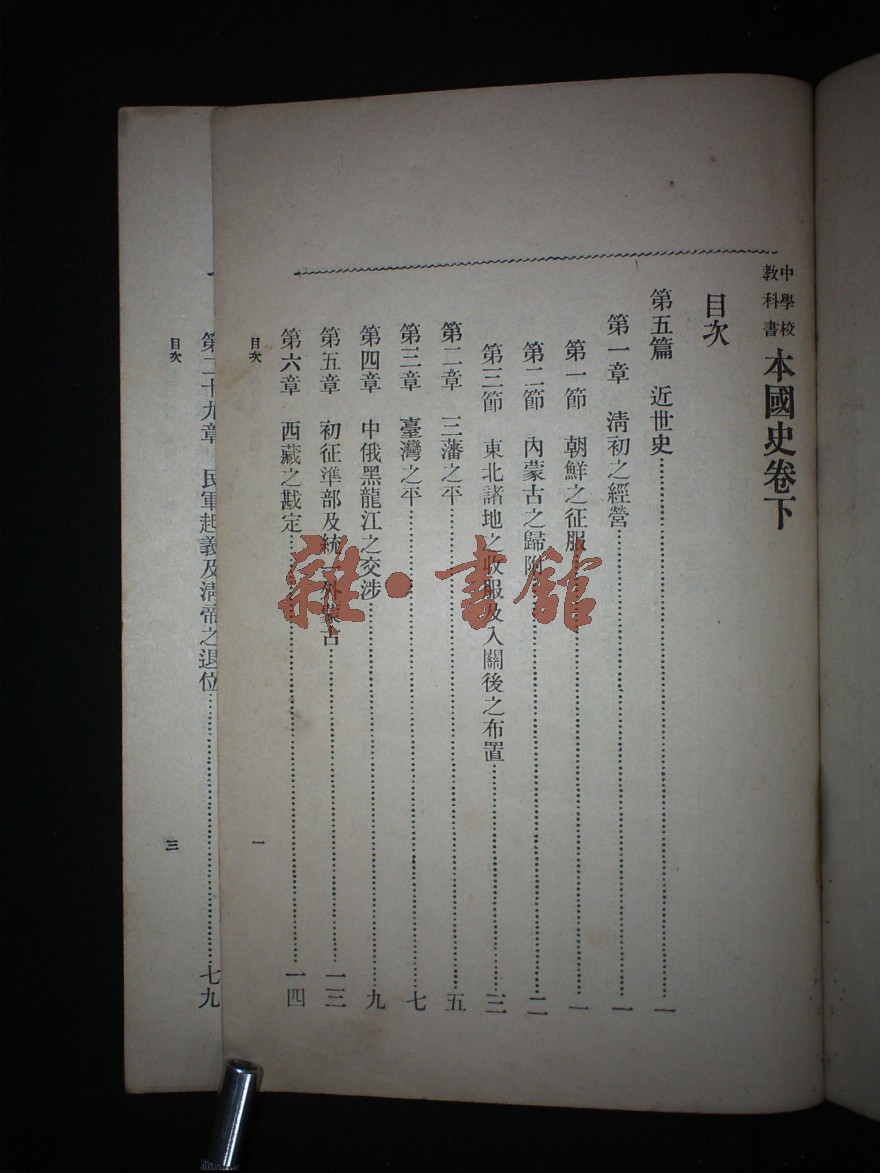 中學校教科書 本國史卷下
目次
第五篇 近世史………一
第一章 淸初之經營………一
第一節 朝鮮之征服………一
第二節 內蒙古之歸附………二
第三節 東北諸地之收服及入關後之布置………三
第二章 三藩之平………五
第三章 臺灣之平………七
第四章 中俄黑龍江之交涉………九
第五章 初征準部及統一外蒙古………一三
第六章 西藏之戡定………一四
目次 一
第二十九章 民軍起義及淸帝之退位………七九
目次 三
雜·書館